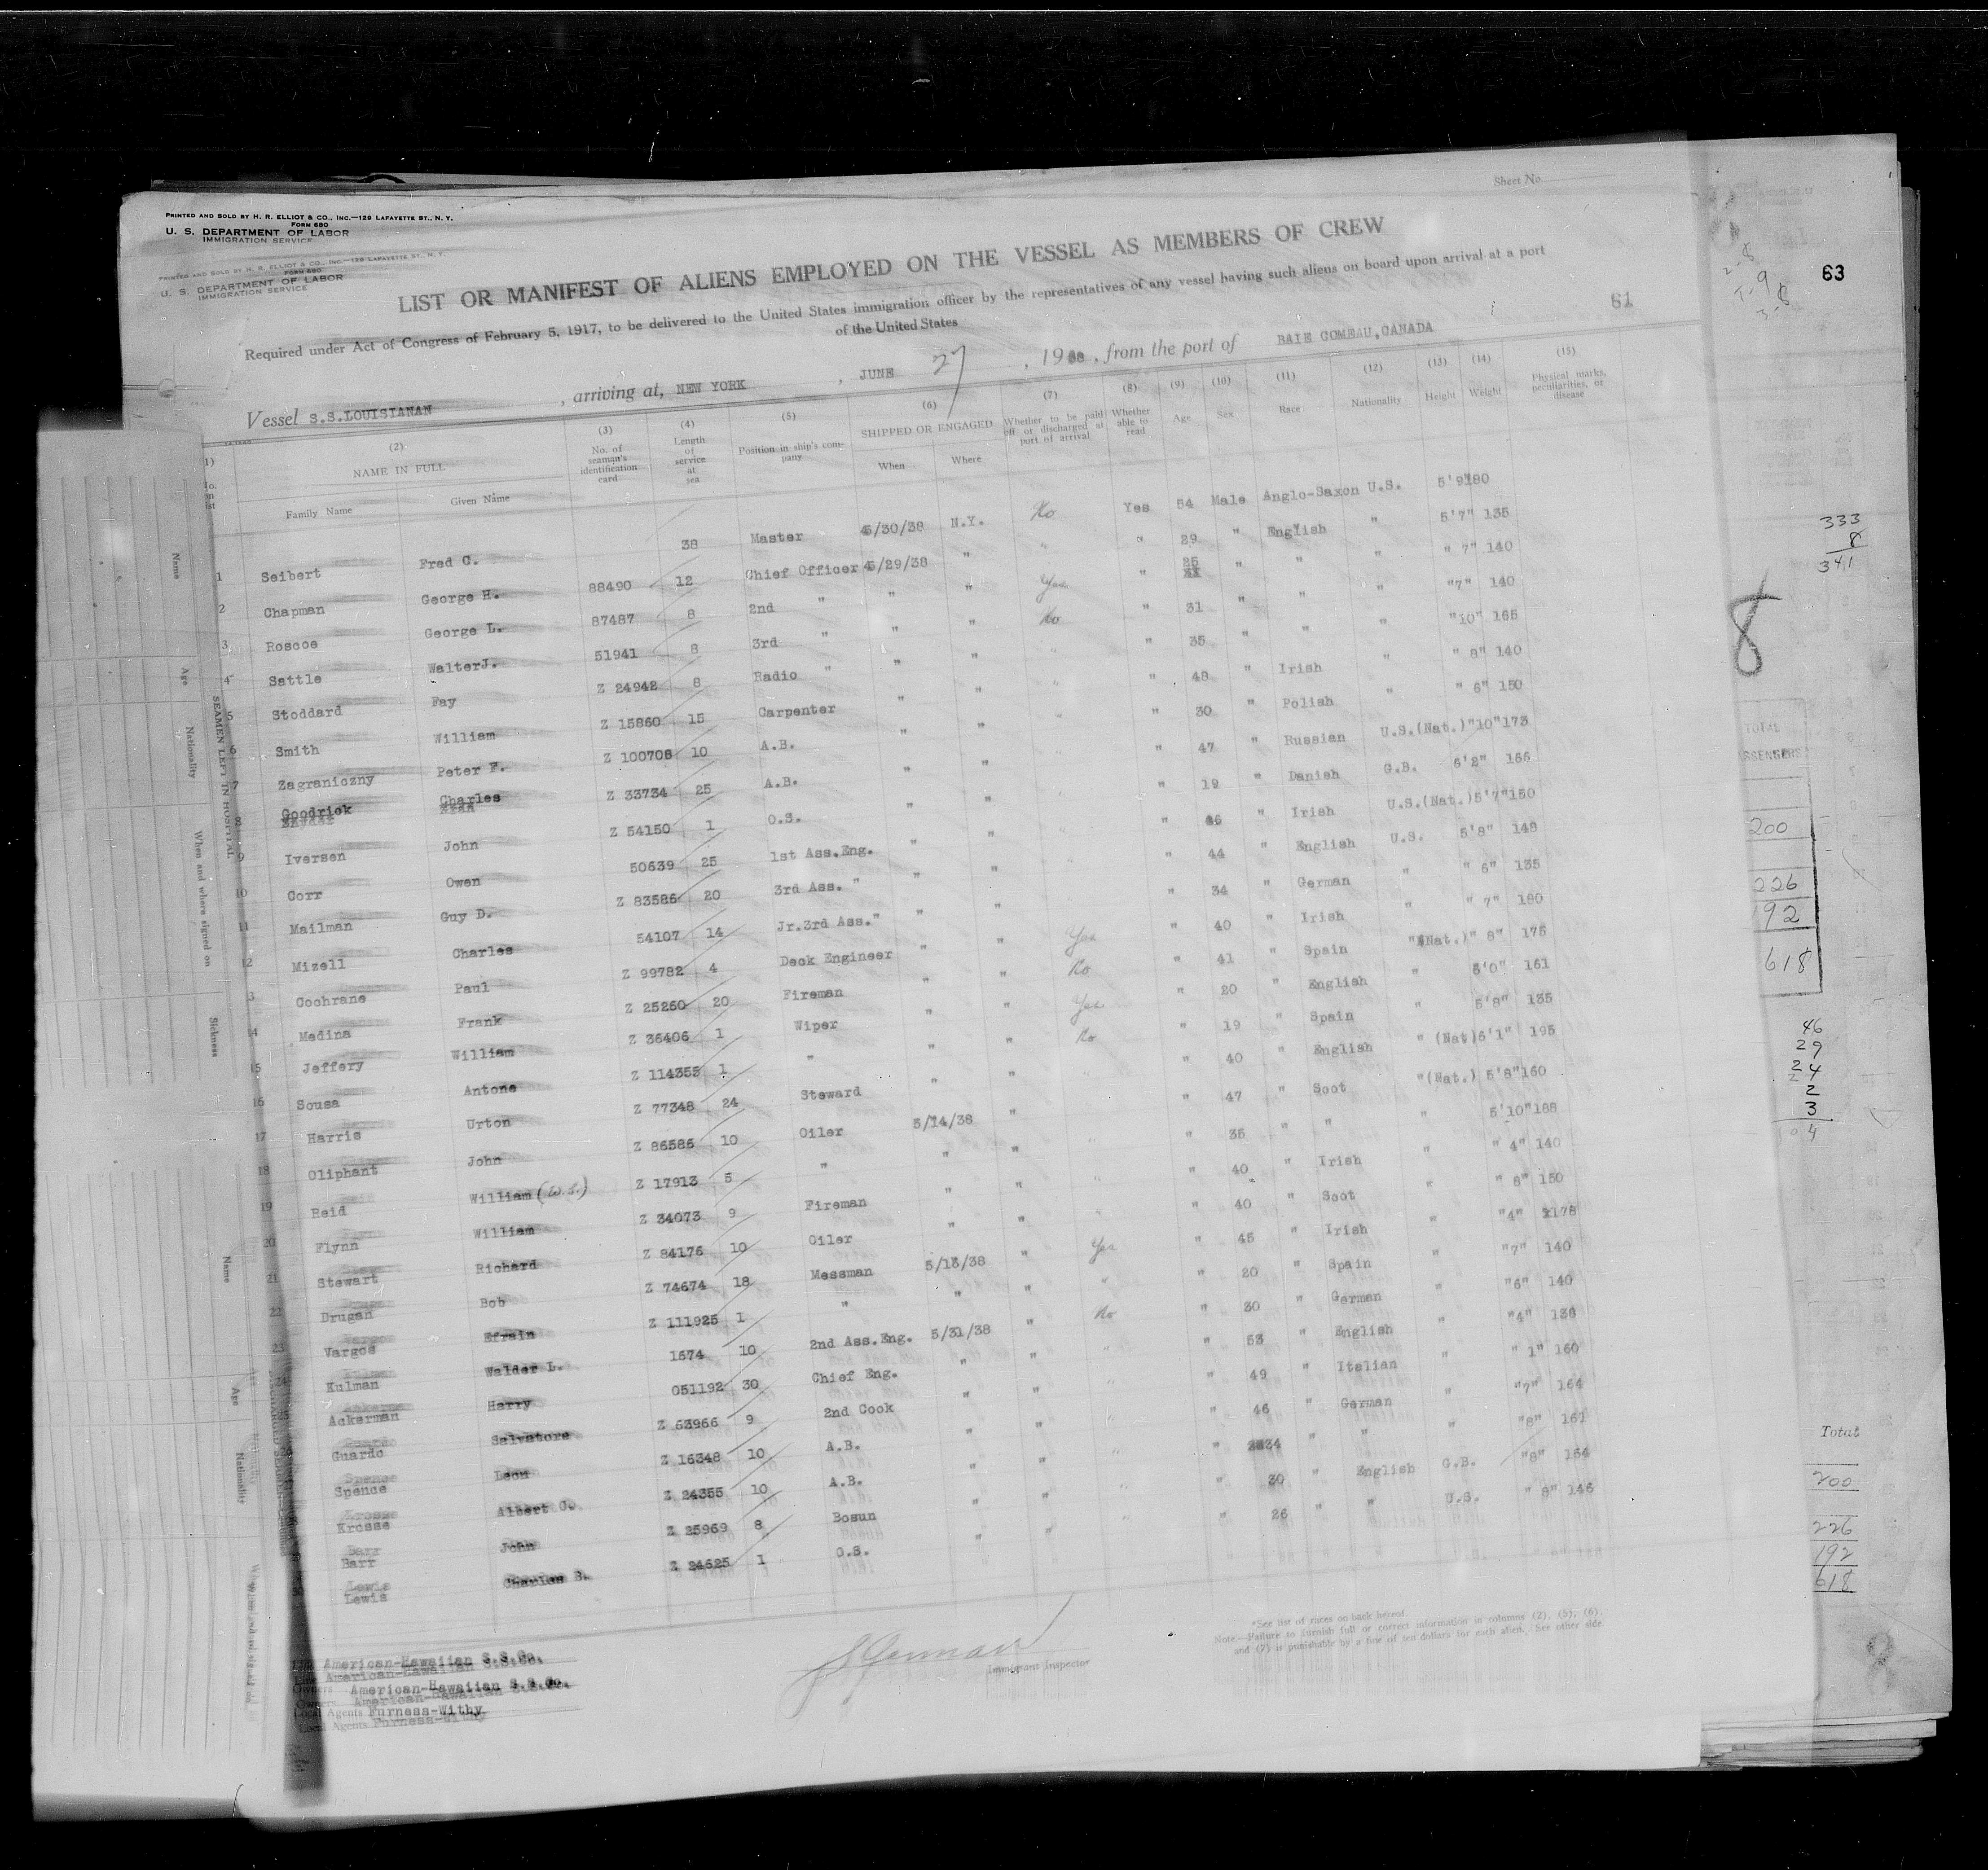 Sheet No.
PRINTED AND SOLD BY H. R. ELLIOT & CO., INC.—129 LAFAYETTE ST., N. Y.
FORM 680
U. S. DEPARTMENT OF LABOR
IMMIGRATION SERVICE
PRINTED AND SOLD BY H. R. ELLIOT & CO., INC.—129 LAFAYETTE ST., N. Y.
FORM 680
U. S. DEPARTMENT OF LABOR
IMMIGRATION SERVICE
63
61
LIST OR MANIFEST OF ALIENS EMPLOYED ON THE VESSEL AS MEMBERS OF CREW
Required under Act of Congress of February 5, 1917, to be delivered to the United States immigration officer by the representatives of any vessel having such aliens on board upon arrival at a port
of the United States
Vessel S.S.LOUISIANAN , arriving at, NEW YORK , JUNE 27 , 1938 , from the port of BAIE COMEAU,CANADA
(1) (2) (3) (4) (5) (6) (7) (8) (9) (10) (11) (12) (13) (14) (15)
No. on list NAME IN FULL Family Name Given Name No. of seaman's identification card Length of service at sea Position in ship's company SHIPPED OR ENGAGED When Where Whether to be paid off or discharged at port of arrival Whether able to read Age Sex Race Nationality Height Weight Physical marks, peculiarities, or disease
1 Seibert Fred C. 38 Master 5/30/38 N.Y. No Yes 54 Male Anglo-Saxon U.S. 5'9" 180
2 Chapman George H. 88490 12 Chief Officer 5/29/38 " " " 29 " English " 5'7" 135
3 Roscoe George L. 87487 8 2nd " " " Yes " 25 " " " " 7" 140
4 Sattle WalterJ. 51941 8 3rd " " " No " 31 " " " "7" 140
5 Stoddard Fay Z 24942 8 Radio " " " " " 35 " " " "10" 165
6 Smith William Z 15860 15 Carpenter " " " " 48 " Irish " " 8" 140
7 Zagraniczny Peter F. Z 100706 10 A.B. " " " " 30 " Polish " " 6" 150
8 Goodrick Charles Z 33734 25 A.B. " " " " 47 " Russian U.S.(Nat.) "10" 173
9 Iversen John Z 54150 1 O.S. " " " " 19 " Danish G.B. 6'2" 166
10 Corr Owen 50639 25 1st Ass.Eng. " " " " 46 " Irish U.S.(Nat.) 5'7" 150
11 Mailman Guy D. Z 83586 20 3rd Ass. " " " " " 44 " English U.S. 5'8" 148
12 Mizell Charles 54107 14 Jr.3rd Ass." " " " " 34 " German " " 6" 135
3 Cochrane Paul Z 99782 4 Deck Engineer " " Yes " 40 " Irish " " 7" 180
14 Medina Frank Z 25260 20 Fireman " " No " 41 " Spain "(Nat.) " 8" 175
15 Jeffery William Z 36406 1 Wiper " " Yes " 20 " English " 6'0" 161
16 Sousa Antone Z 114355 1 " " " No " 19 " Spain " 5'8" 135
17 Harris Urton Z 77348 24 Steward " " " 40 " English " (Nat) 6'1" 195
18 Oliphant John Z 86586 10 Oiler 5/14/38 " " 47 " Scot "(Nat.) 5'8" 160
19 Reid William (W.S.) Z 17913 5 " " " " " 35 " " " 5'10" 168
20 Flynn William Z 34073 9 Fireman " " " 40 " Irish " " 4" 140
21 Stewart Richard Z 84176 10 Oiler " " " " 40 " Scot " " 8" 150
22 Drugan Bob Z 74674 18 Messman 5/13/38 " Yes " 45 " Irish " "4" 178
23 Vargos Efrain Z 111925 1 " " " " " 20 " Spain " "7" 140
24 Kulman Walder L. 1674 10 2nd Ass.Eng. 5/31/38 " No " 30 " German " "6" 140
25 Ackerman Harry 051192 30 Chief Eng. " " " " 53 " English " "4" 138
Guardo Salvatore Z 63966 9 2nd Cook " " " " 49 " Italian " " 1" 160
Spence Leon Z 16348 10 A.B. " " " " 46 " German " "7" 164
Krosse Albert C. Z 24355 10 A.B. " " " " 34 " " " "8" 161
Barr John Z 25969 8 Bosun " " " " 30 " English G.B. "8" 164
Lewis Charles B. Z 24625 1 O.S. " " " " 26 " " U.S. " 8" 146
Line American-Hawaiian S.S.Co.
Owners American-Hawaiian S.S.Co.
Local Agents Furness-Withy
Immigrant Inspector
*See list of races on back hereof.
Note—Failure to furnish full or correct information in columns (2), (5), (6),
and (7) is punishable by a fine of ten dollars for each alien. See other side
SEAMEN LEFT IN HOSPITAL
Name
Age
Nationality
When and where signed on
Sickness
Name
Age
Nationality
333
8
341
8
TOTAL
200
226
192
618
46
29
24
2
3
Total
200
226
192
618
8